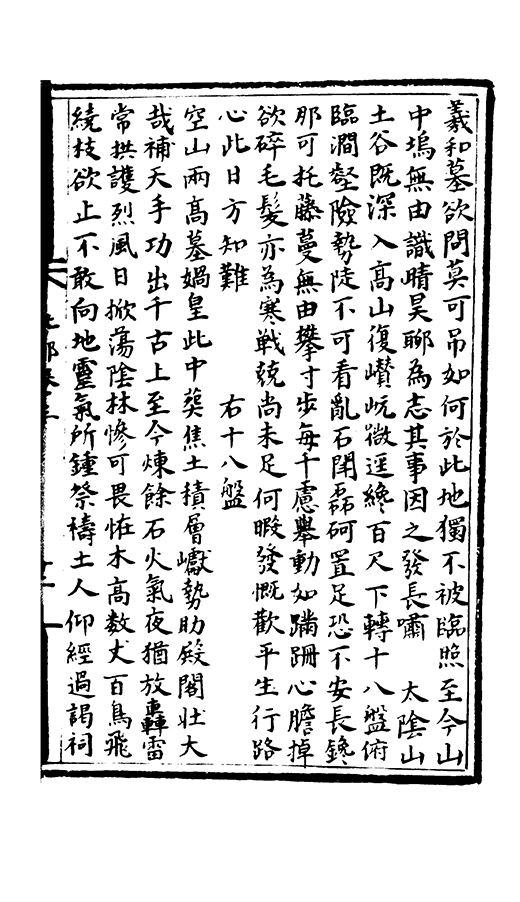 羲和墓欲問莫可吊如何於此地獨不被臨照至今山
中塢無由識晴昊聊為志其事因之發長嘯　太陰山
土谷既深入高山復巑岏微逕纔百尺下轉十八盤俯
臨澗壑險勢陡不可看亂石閗磊砢置足恐不安長鑱
那可托藤蔓無由攀寸步每千慮舉動如蹣跚心膽掉
欲碎毛髮亦為寒戰兢尚未足何暇發慨歎平生行路
心此日方知難　　　右十八盤
空山兩髙墓媧皇此中葬焦土積層巘勢助殿閣壯大
哉補天手功出千古上至今煉餘石火氣夜猶放轟雷
常拱護烈風日掀蕩陰林慘可畏恠木髙數丈百鳥飛
繞枝欲止不敢向地靈氣所鍾祭禱土人仰經過謁祠